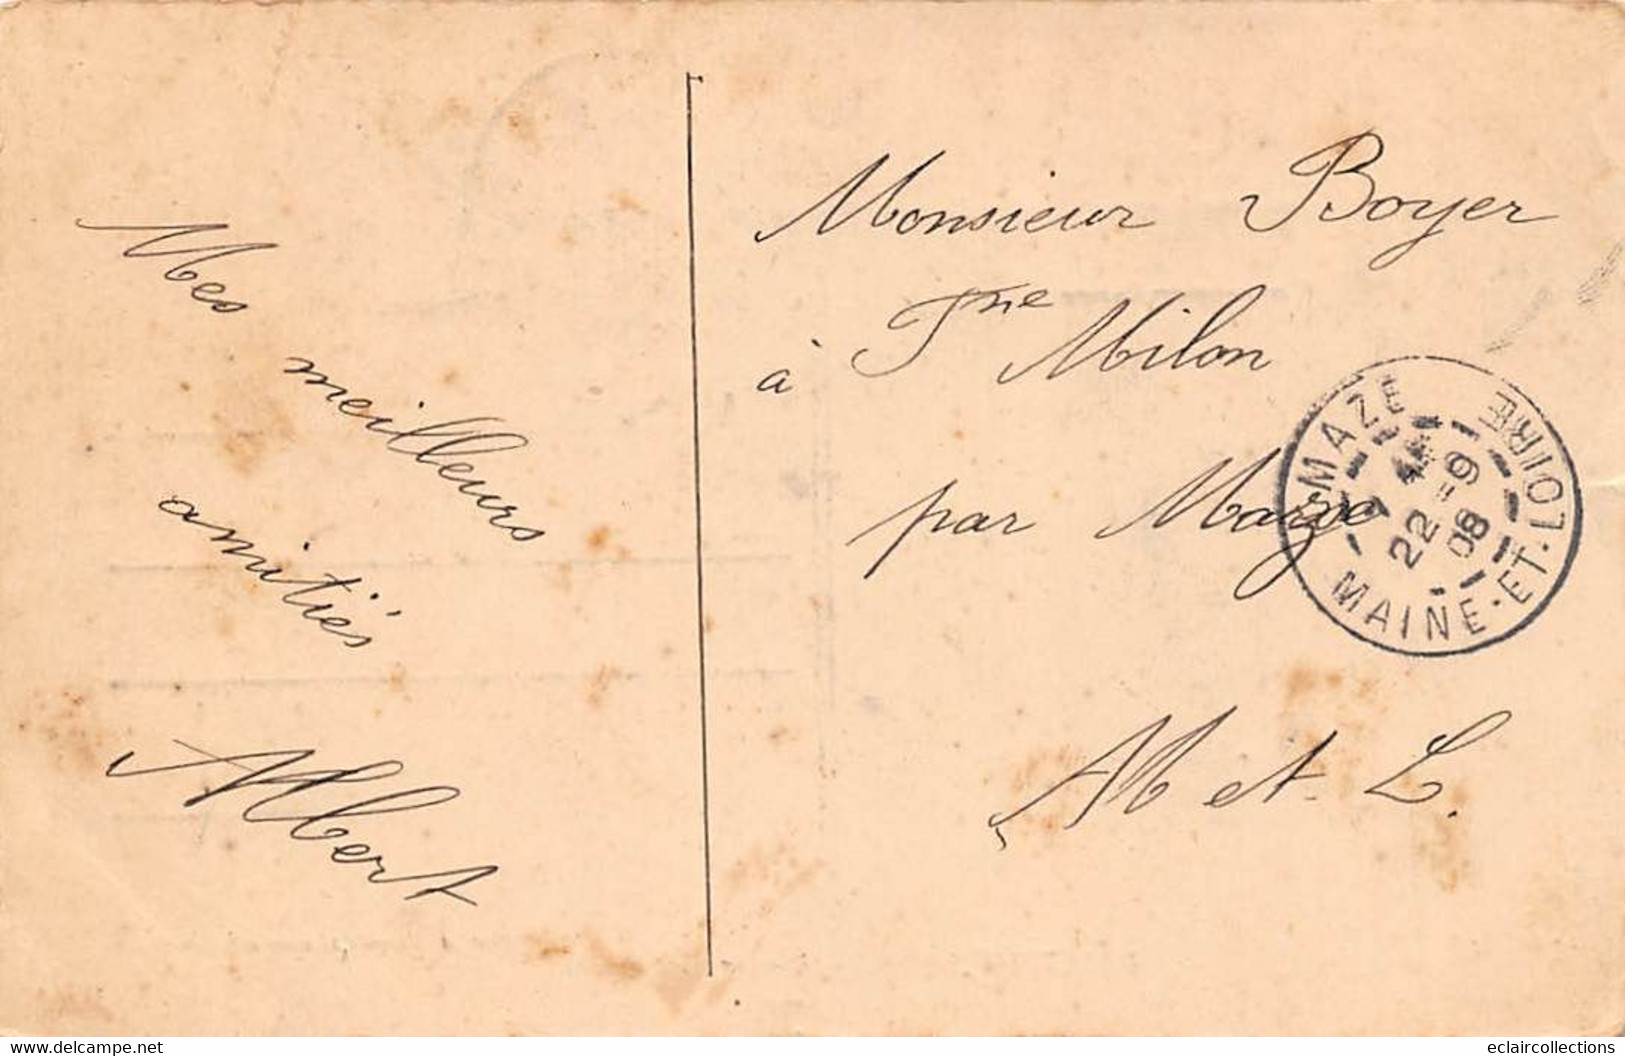 Mes
meilleurs
amitiés
Albert
Monsieur Boyer
à Fne Milon
par Mazé
M et L.
MAZÉ
22 -9
08
MAINE-ET-LOIRE
www.delcampe.net
eclaircollections